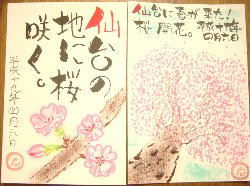 仙台の
地に桜
咲く。
平成十九年四月六日
仙台に春が来た!
桜開花。
平成十九年
四月六日